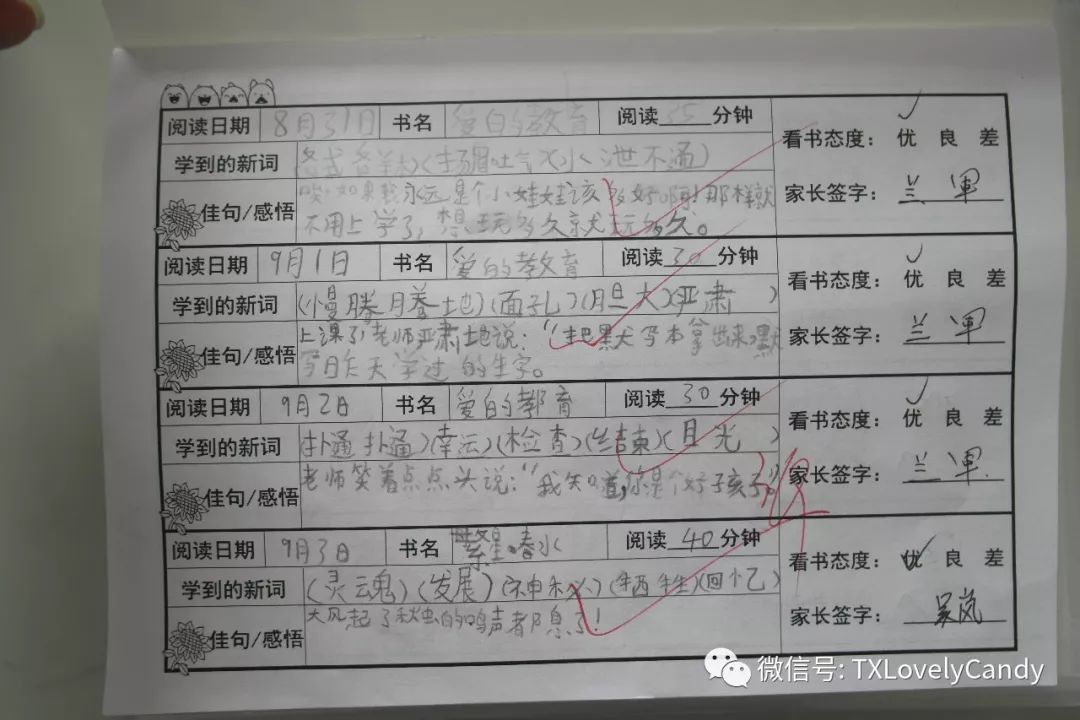 阅读日期 8月31日 书名 爱的教育 阅读 35 分钟
看书态度： 优 良 差
学到的新词 (各式各样)(扬眉吐气)(水泄不通)
家长签字： 兰军
佳句/感悟 唉,如果我永远是个小娃娃该多好啊!那样就
不用上学了,想玩多久就玩多久。
阅读日期 9月1日 书名 爱的教育 阅读 30 分钟
看书态度： 优 良 差
学到的新词 (慢腾腾地)(面孔)(胆大)(严肃)
家长签字： 兰军
佳句/感悟 上课了,老师严肃地说：“把默写本拿出来,默
写昨天学过的生字。
阅读日期 9月2日 书名 爱的教育 阅读 30 分钟
看书态度： 优 良 差
学到的新词 (扑通扑通)(幸运)(检查)(结束)(目光)
家长签字： 兰军
佳句/感悟 老师笑着点点头说：“我知道,你是个好孩子。”
阅读日期 9月3日 书名 繁星·春水 阅读 40 分钟
看书态度： 优 良 差
学到的新词 (灵魂)(发展)(神秘)(牺牲)(回忆)
家长签字： 吴岚
佳句/感悟 大风起了秋虫的鸣声都息了!
微信号: TXLovelyCandy